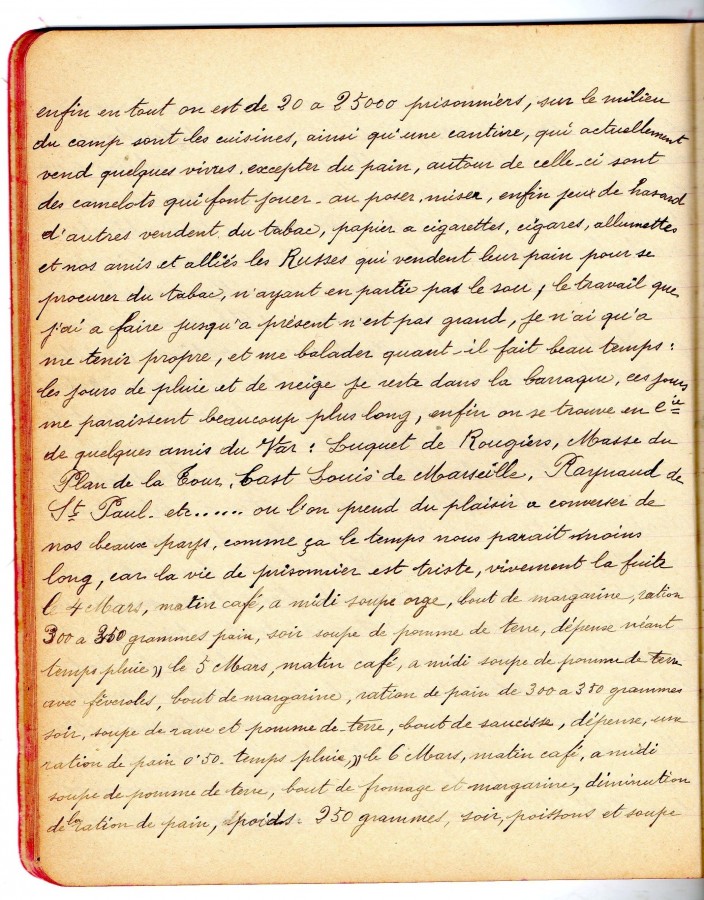 enfin en tout on est de 20 a 25000 prisonniers, sur le milieu
du camp sont les cuisines, ainsi qu'une cantine, qui actuellement
vend quelques vivres, excepter du pain, autour de celle-ci sont
des camelots qui font jouer - au poser, miser, enfin jeux de hasard
d'autres vendent du tabac, papier a cigarettes, cigares, allumettes
et nos amis et alliés les Russes qui vendent leur pain pour se
procurer du tabac, n'ayant en partie pas le sou ; le travail que
j'ai a faire jusqu'a présent n'est pas grand, je n'ai qu'a
me tenir propre, et me balader quant-il fait beau temps :
les jours de pluie et de neige je reste dans la barraque, ces jours
me paraissent beaucoup plus long, enfin on se trouve en Cie
de quelques amis du Var : Luguet de Rougiers, Masse du
Plan de la Tour, Cast Louis de Marseille, Raynaud de
St Paul - etc...... ou l'on prend du plaisir a converser de
nos beaux pays, comme ça le temps nous parait moins
long, car la vie de prisonnier est triste, vivement la fuite
le 4 Mars, matin café, a midi soupe orge, bout de margarine, ration
300 a 350 grammes pain, soir soupe de pomme de terre, dépense néant
temps pluie,, le 5 Mars, matin café, a midi soupe de pomme de terre
avec fèveroles, bout de margarine, ration de pain de 300 a 350 grammes
soir, soupe de rave et pomme de-terre, bout de saucisse, dépense, une
ration de pain 0'50 - temps pluie,,, le 6 Mars, matin café, a midi
soupe de pomme de terre, bout de fromage et margarine, diminution
de la ration de pain, poids - 250 grammes, soir, poissons et soupe